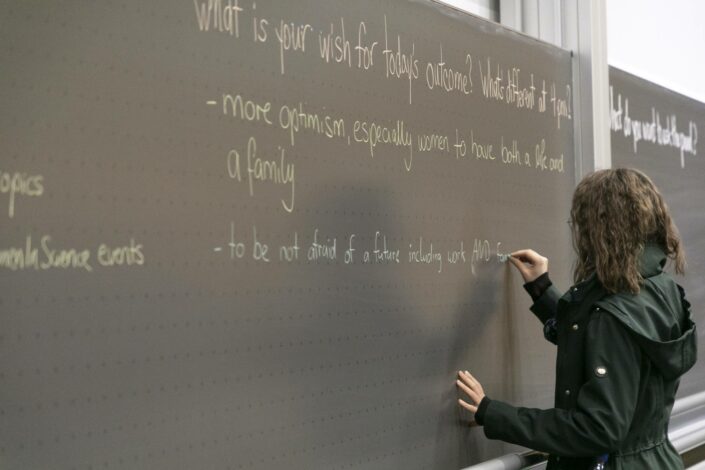 What is your wish for today's outcome? Whats different at 4 pm?
- more optimism, especially women to have both a life and
a family
- to be not afraid of a future including work AND fam
opics
men In Science events
do you want